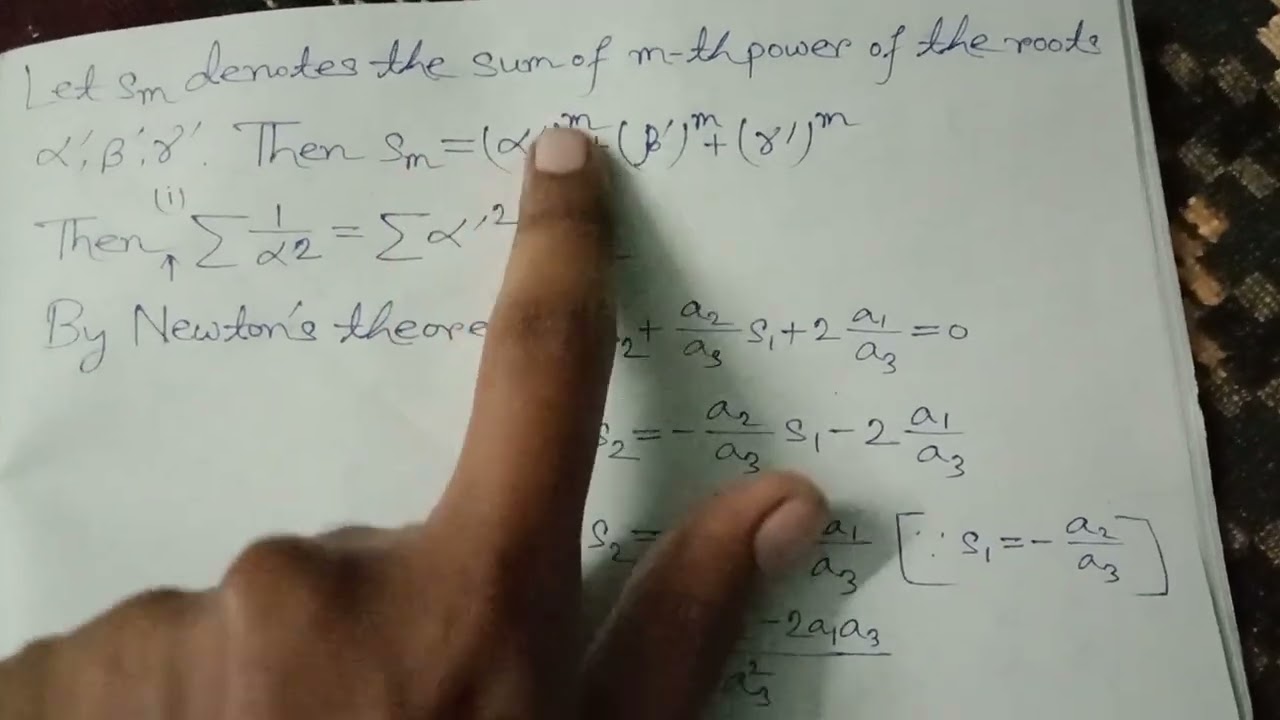 Let Sm denotes the sum of m-th power of the roots
α', β', γ'. Then Sm = (α')^m + (β')^m + (γ')^m
(i)
Then ↑ Σ 1/α2 = Σ α'^2
By Newton's + a2/a3 S1 + 2 a1/a3 = 0
S2 = - a2/a3 S1 - 2 a1/a3
S2 = a1/a3 [∵ S1 = - a2/a3]
-2a1a3
a3^2